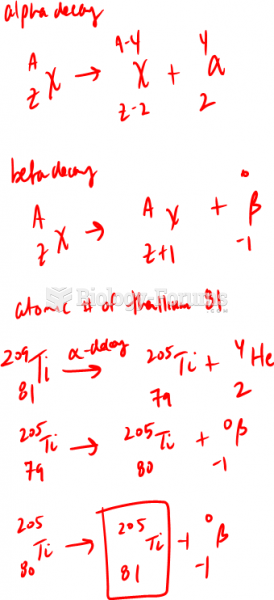 alpha decay
A Z X → A-4 Z-2 X + 4 2 α
beta decay
A Z X → A Z+1 X + 0 -1 β
atomic # of thallium 81
209 81 Ti α-decay → 205 79 Ti + 4 2 He
205 79 Ti → 205 80 Ti + 0 -1 β
205 80 Ti → 205 81 Ti + 0 -1 β
Biology-Forums